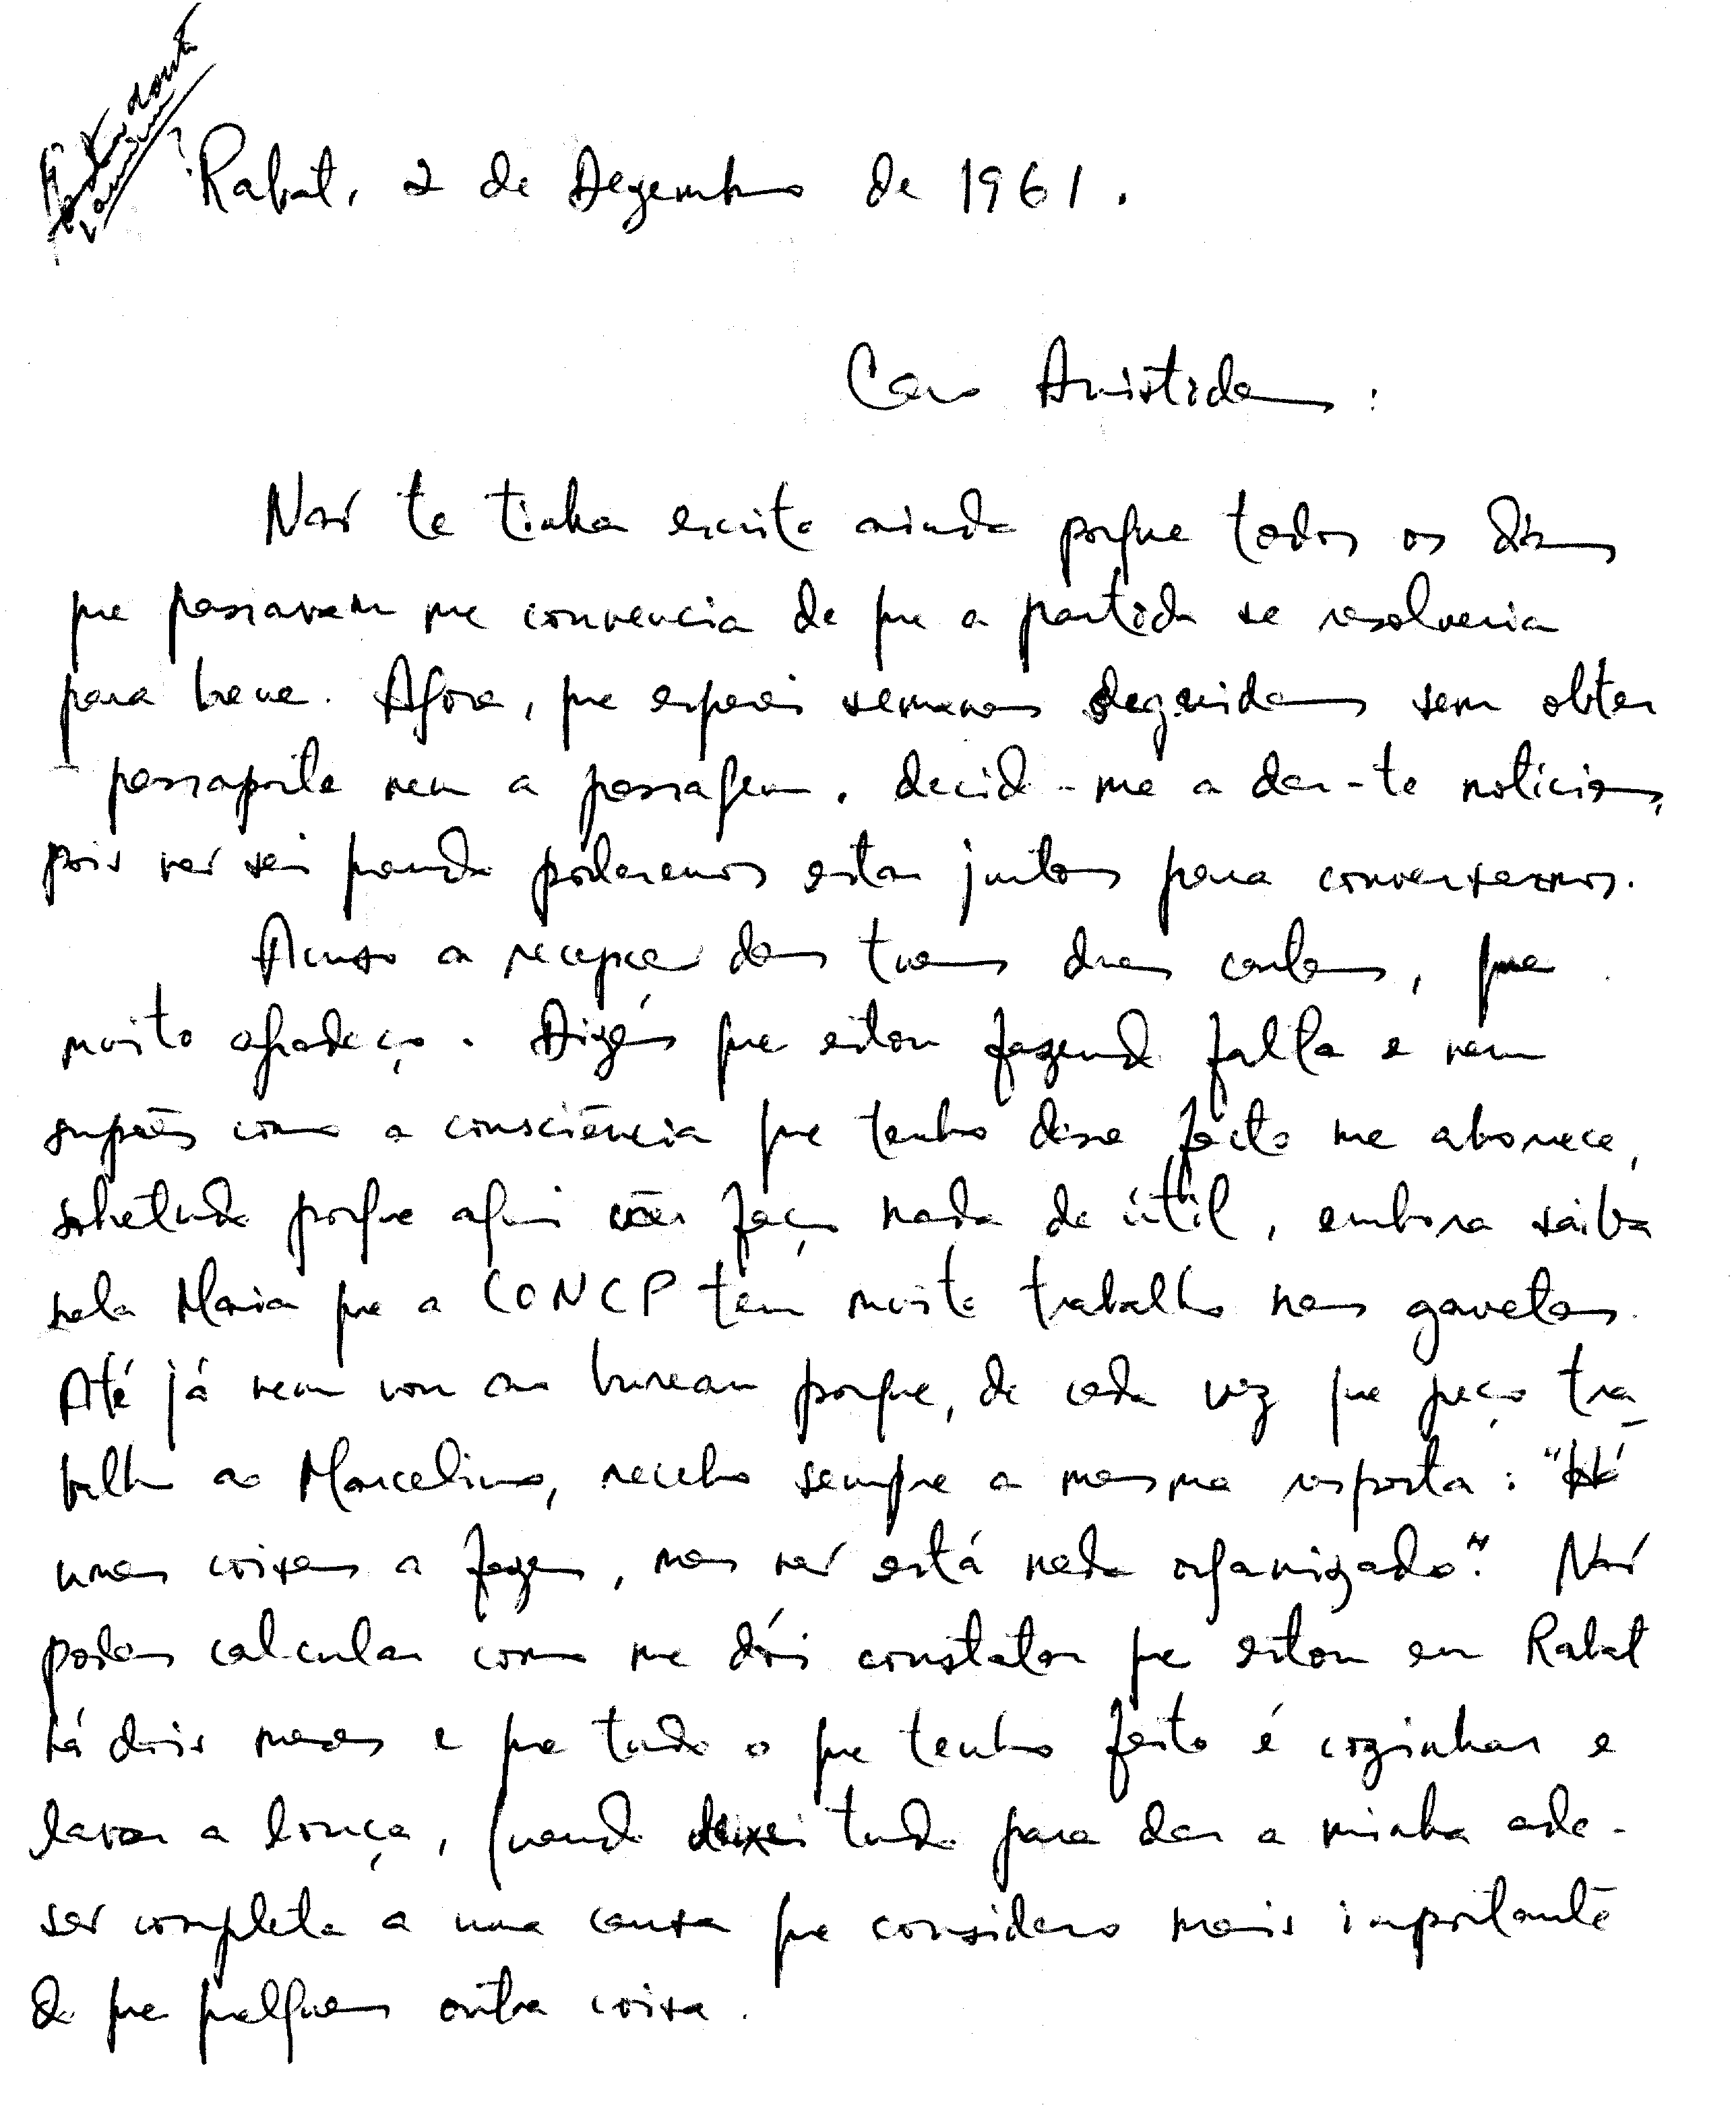 Rabat, 2 de Dezembro de 1961.
Caro Aristides:
Não te tinha escrito ainda porque todos os dias
que passavam me convencia de que a partida se resolveria
para breve. Agora, que esperei semanas seguidas sem obter
o passaporte nem a passagem, decido-me a dar-te notícias,
pois não sei quando poderemos estar juntos para conversarmos.
Acuso a recepção das tuas duas cartas, que
muito agradeço. Dizes que estou fazendo falta e nem
supões como a consciência que tenho desse facto me aborrece,
sobretudo porque aqui não faço nada de útil, embora saiba
pela Maria que a CONCP tem muito trabalho nas gavetas.
Até já nem vou ao bureau porque, de cada vez que peço tra-
balho ao Marcelino, recebo sempre a mesma resposta: "Há
umas coisas a fazer, mas não está nada organizado". Não
podes calcular como me dói constatar que estou em Rabat
há dois meses e que tudo o que tenho feito é cozinhar e
lavar a louça, quando deixei tudo para dar a minha ade-
são completa a uma causa que considero mais importante
do que qualquer outra coisa.